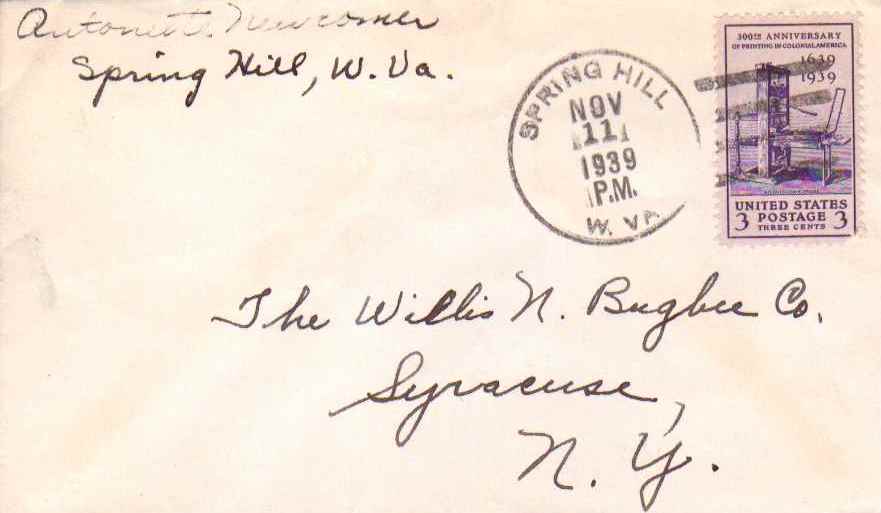 Antonette Newcomer
Spring Hill, W. Va.
SPRING HILL
NOV
11
1939
P.M.
W. VA
300TH ANNIVERSARY
OF PRINTING IN COLONIAL AMERICA
1639
1939
UNITED STATES
3 POSTAGE 3
THREE CENTS
The Willis N. Bugbee Co.
Syracuse,
N. Y.